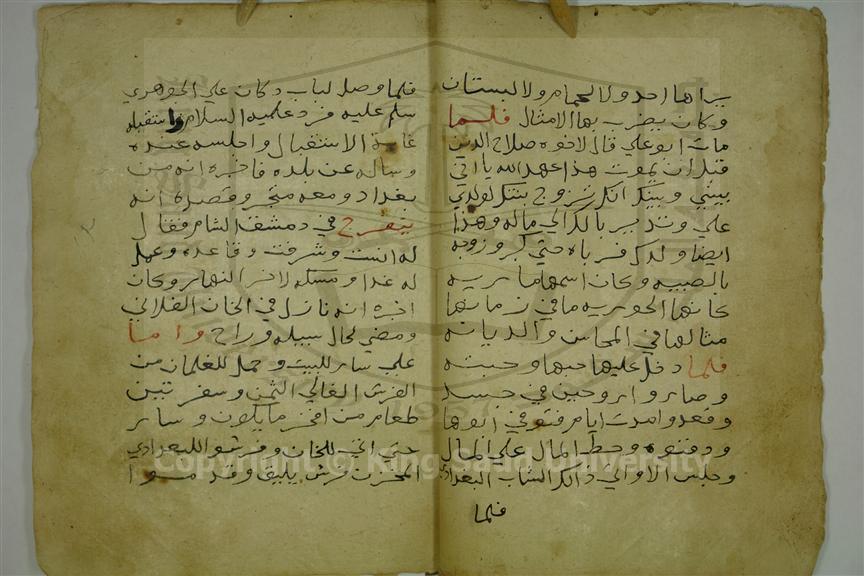 يراها احد ولا الحمام ولا البستان
وكان يضرب بها الامثال فلما
مات ابو علي قال لاخوه صلاح الدين
قبل ان يموت هذا عهد الله يا اخي
بيني وبينك انك تزوج بنتك لولدي
علي وتدير بالك الي ماله وهذا
ايضا ولدك فرباه حتي كبر وزوجه
بالصبيه وكان اسمها ماريه
كانها الحوريه ما في زمانها
مثالها في المحاسن والديانه
فلما دخل عليها حبها وحبته
وصارو ا روحين في جسد
وقعدو امدت ايام فتوفي ابوها
ودفنوه وحط المال علي المال
وجلس الا واتي ذالك الشاب البغدادي
فلما
فلما وصل لباب دكان علي الجوهري
سلم عليه فرد عليه السلام واستقبله
غاية الاستقبال واجلسه عنده
وساله عن بلده فاخبره انه من
بغداد ومعه متجر وقصده انه
يتفرج في دمشق الشام فقال
له انست وشرفت وقاعده وعمل
له غدا ومسكه لاخر النهار وكان
اخبره انه نازل في الخان الفلاني
ومضي لحال سبيله وراح واما
علي سار للبيت وحمل للغلمان من
الفرش الغالي الثمن وسفرتين
طعام من افخر ما يكون وسار
حتي اتي للخان وفرشو اللبغدادي
المخزن فرش يليق وقدموا
Copyright © King Saud University